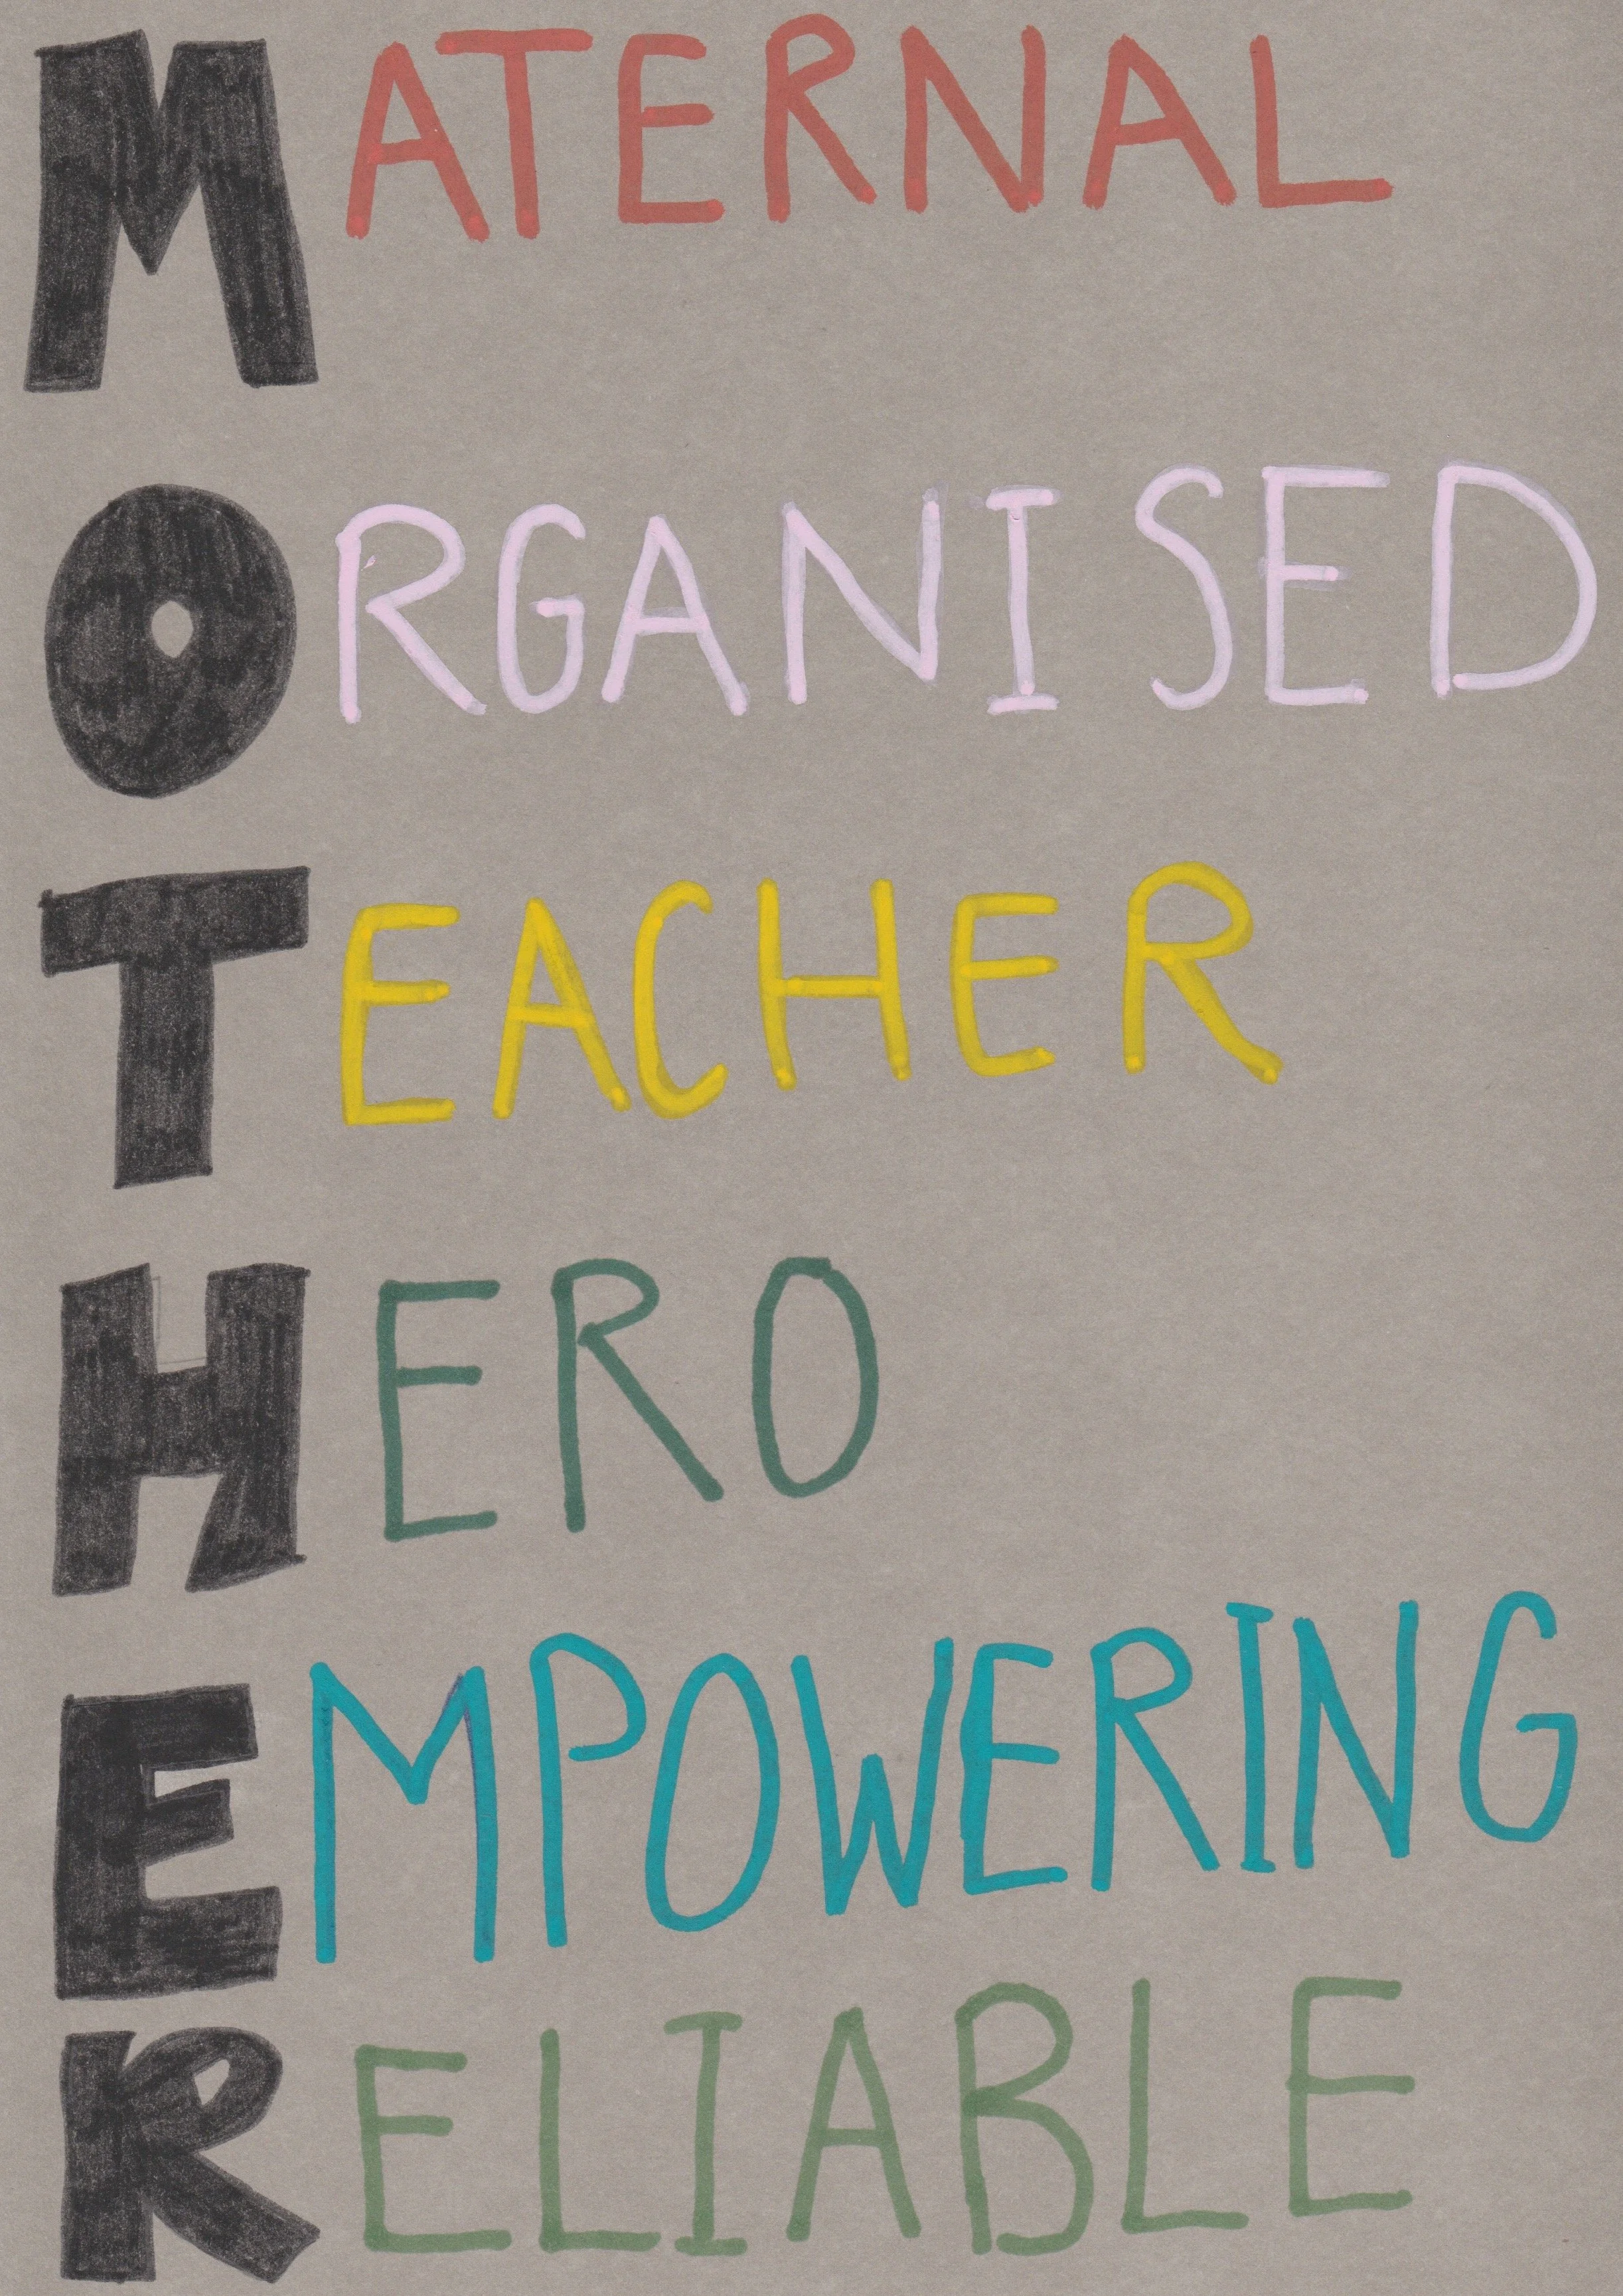 MATERNAL
ORGANISED
TEACHER
HERO
EMPOWERING
RELIABLE